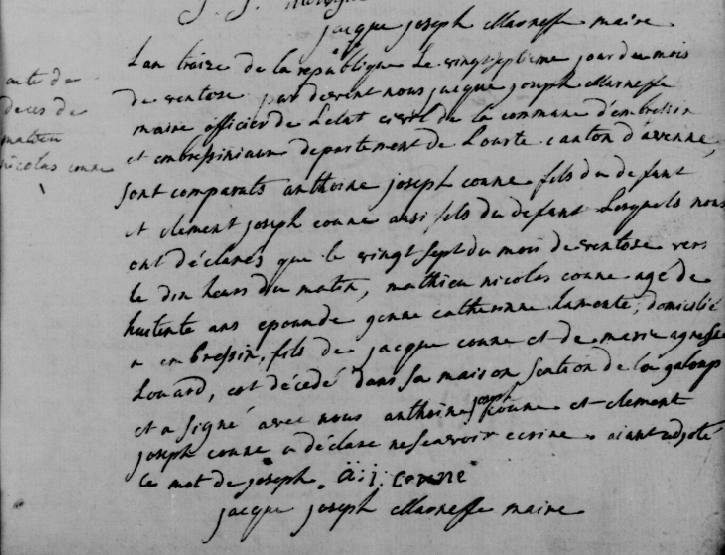 jacque joseph Marneffe maire
acte de
deces de
mathieu
nicolas conne
Lan traize de la république le vingtseptieme jour du mois
de ventose par devent nous jacque joseph Marneffe
maire officier de Letat civil de la commune d'embressin
et embressiniaux departement de Lourte canton d'avenne,
sont comparuts anthoine joseph conne fils du defunt
et clement joseph conne ausi fils du defunt Lesquels nous
ont déclarés que le vingt sept du mois de ventose vers
le dix heurs du matin, mathieu nicolas conne agé de
huitente ans epoux de jenne catherinne Lamente, domicilié
a embressin, fils de jacque conne et de marie agnesse
Louard, est décédé dans sa maison section de la galoup
et a signé avec nous anthoine joseph conne et clement
joseph conne a déclaré ne scavoir ecrire. aiant adjoté
le mot de joseph. a: j: conne
jacque joseph Marneffe maire